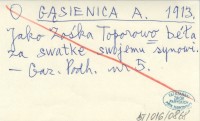 O GĄSIENICA A. 1913.
Jako Zośka Toporowo beła
za swatkę swojemu synowi.
– Gaz. Podh. nr 5.